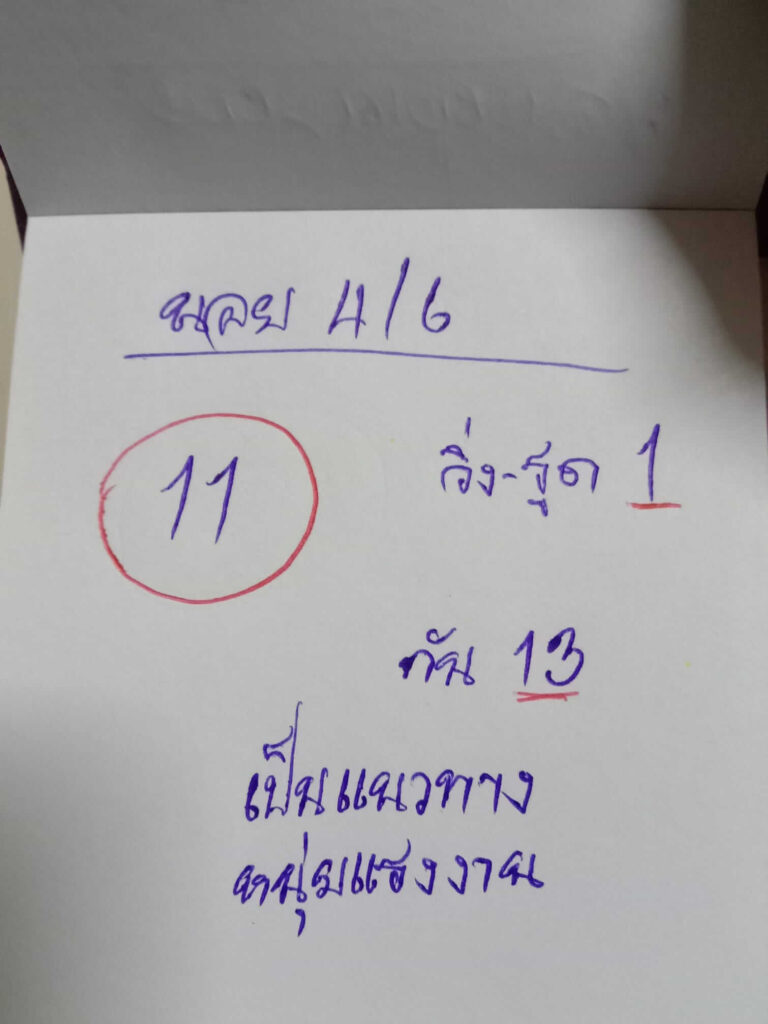 นอย 4/6
11
วิ่ง-รูด 1
กัน 13
เป็นแนวทาง
หนุ่มแรงงาน